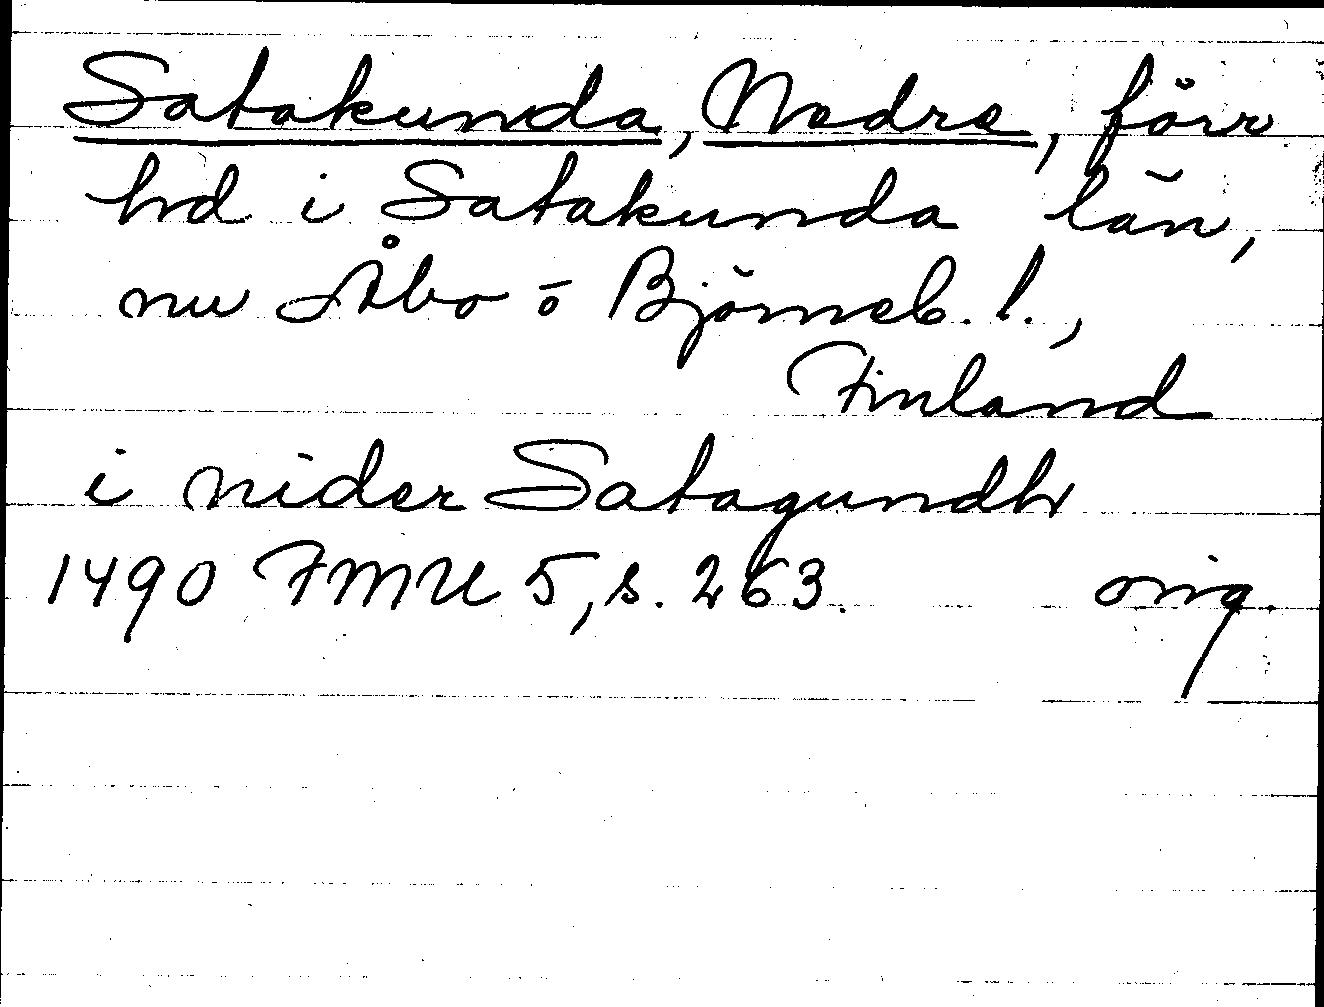 Satakunda, Nedre, förr
hd i Satakunda län,
nu Åbo o Björneb. l.,
Finland
i nider Satagundh
1490 FMU 5, s. 263. orig.